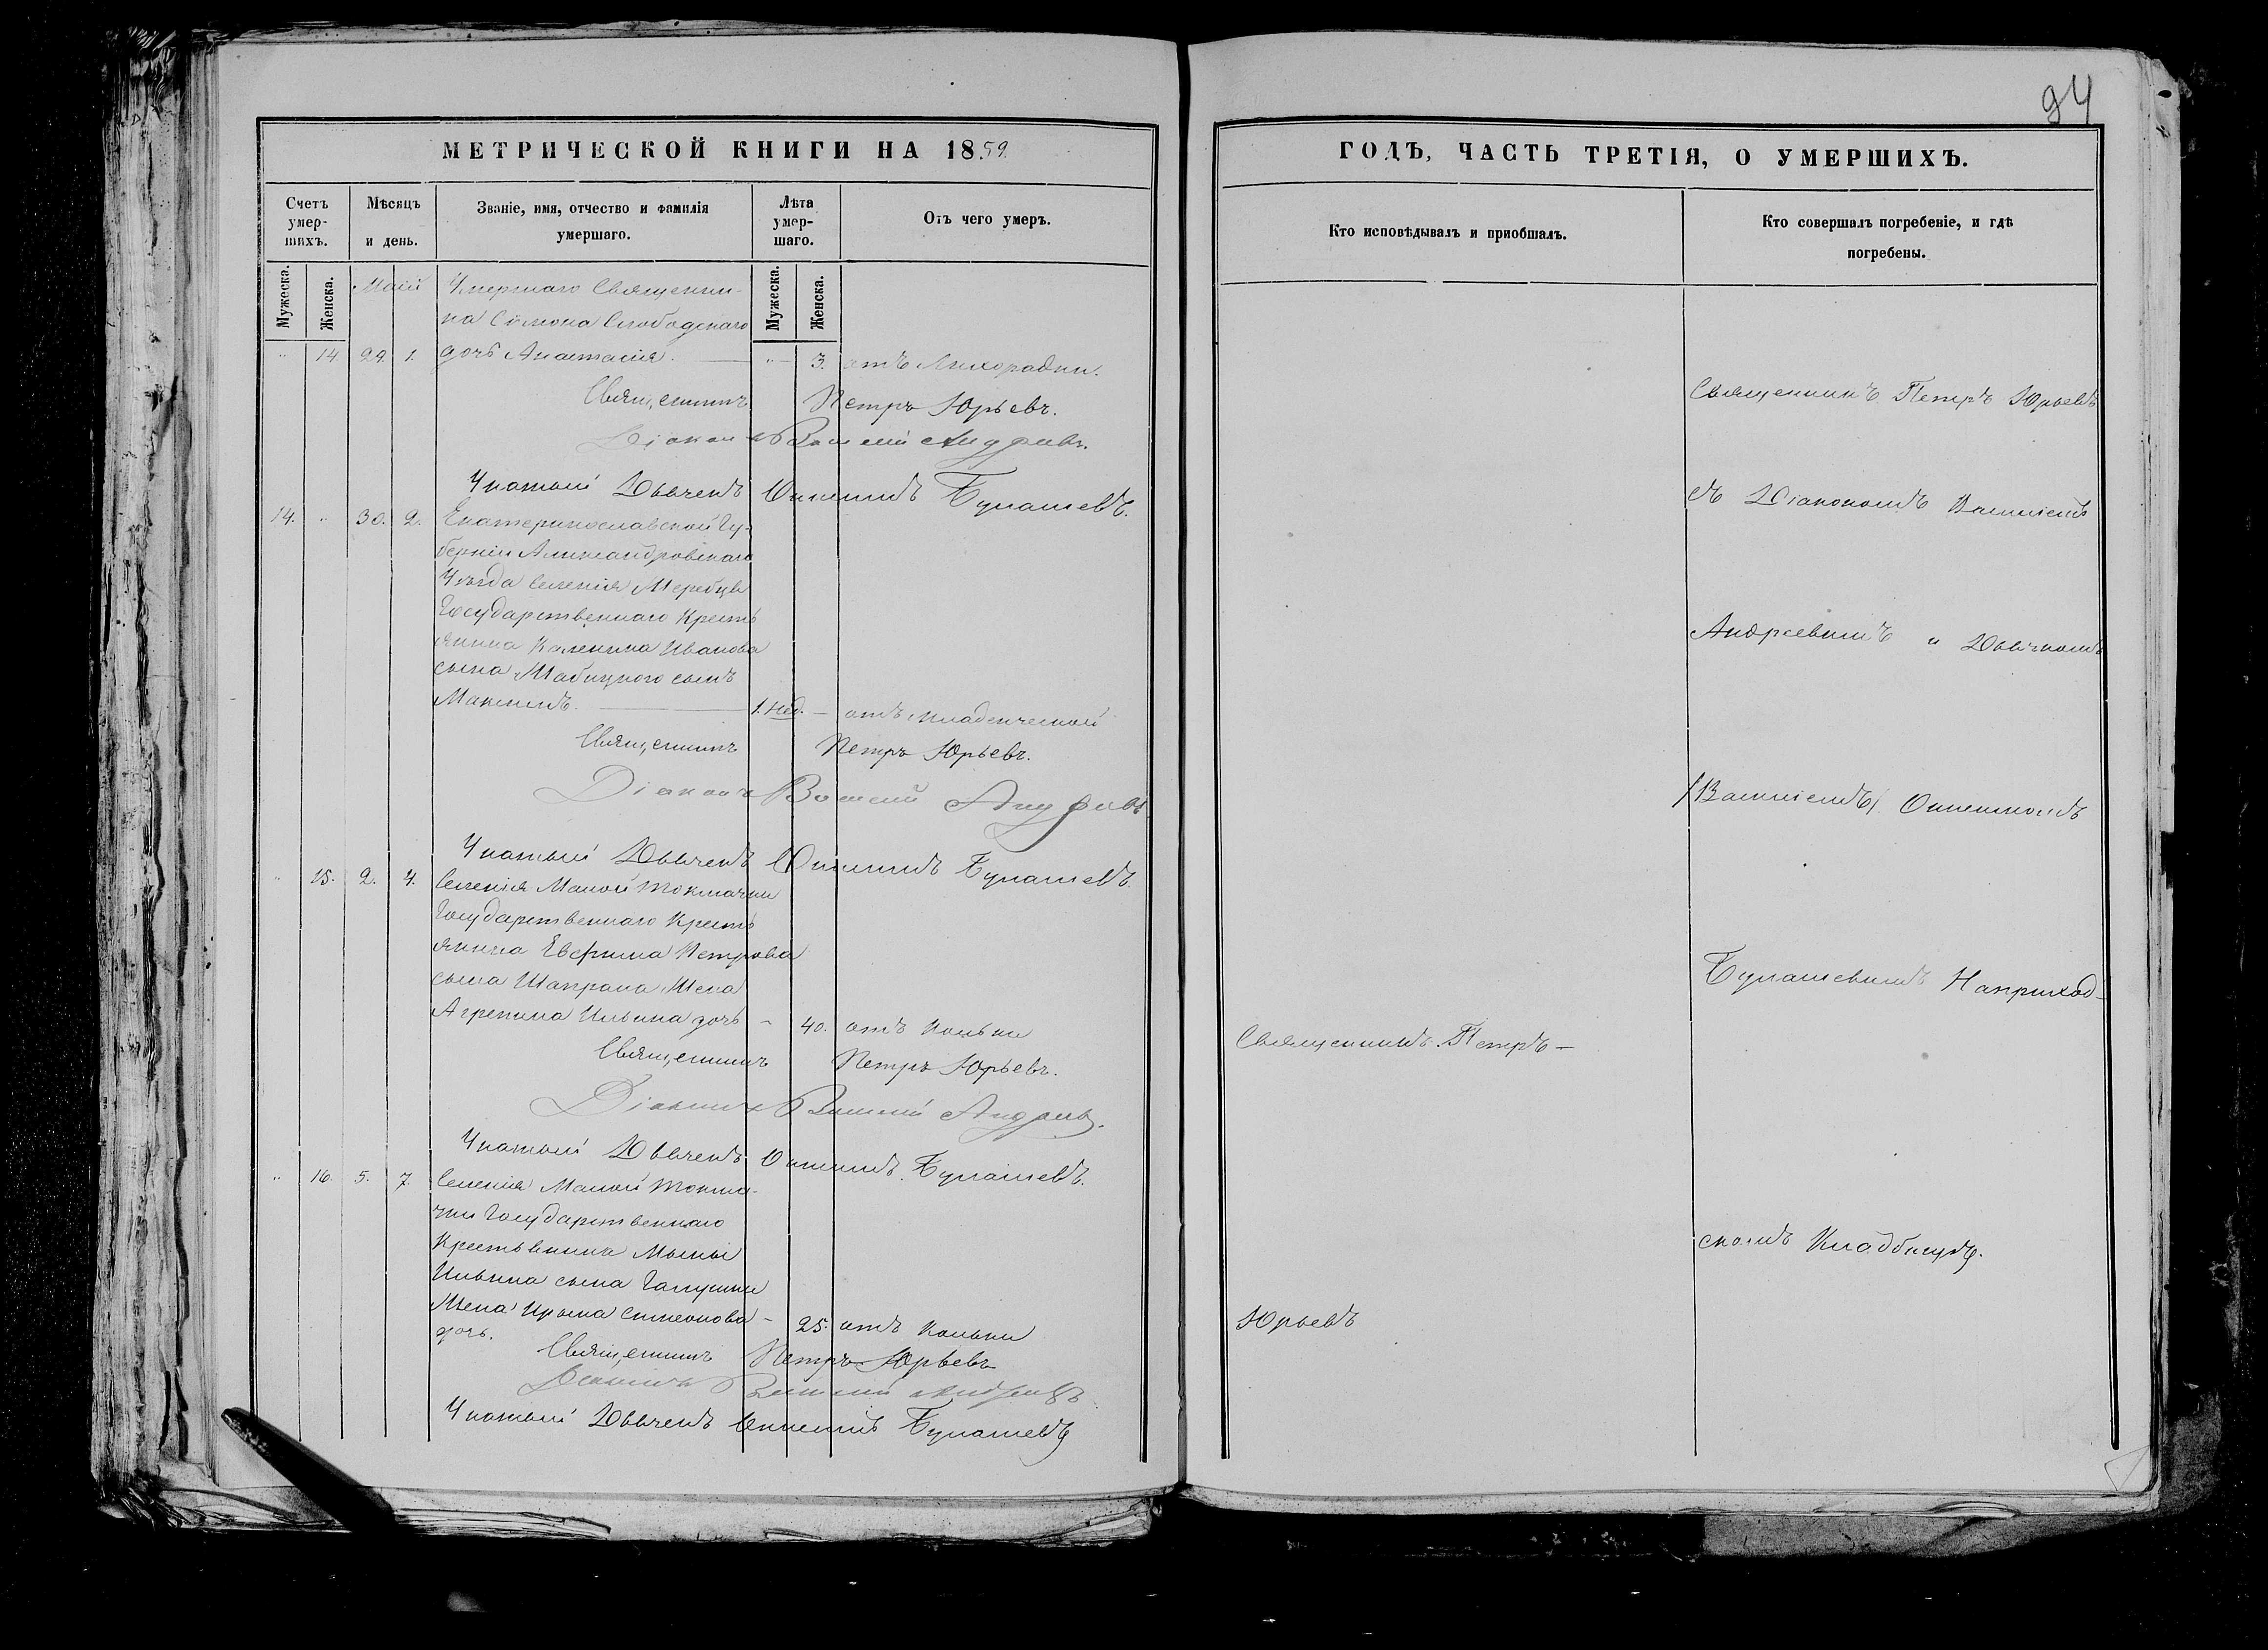 94
МЕТРИЧЕСКОЙ КНИГИ НА 1859.
Счетъ умер-шихъ.
Мѣсяцъ и день.
Званіе, имя, отчество и фамилія умершаго.
Лѣта умер-шаго.
Отъ чего умеръ.
Мужеска.
Женска.
Мужеска.
Женска.
Маій
Умершаго Священни-
ка Симона Слободскаго
14 29. 1. дочь Анастасія. 3. отъ Лихорадки.
Священникъ Петръ Юрьевъ.
Діаконъ Василій Андреевъ.
Указный Дьячекъ Онисимъ Булашевъ.
14. 30. 2. Екатеринославской Гу-
берніи Александровскаго
Уѣзда Селенія Жеребца
Государственнаго Кресть
янина Каленика Иванова
сына сынъ
Максимъ. 1. нед. — отъ младенческой
Священникъ Петръ Юрьевъ.
Діаконъ Василій Андреевъ
Указный Дьячекъ Онисимъ Булашевъ.
15. 2. 4. Селенія Малой Токмачки
Государственнаго Кресть
янина Евфима Петрова
сына Шапрана Жена
Агрепина Ильина дочь — 40. отъ
Священникъ Петръ Юрьевъ.
Діаконъ Василій Андреевъ.
Указный Дьячекъ Онисимъ Булашевъ.
16. 5. 7. Селенія Малой Токма-
чки Государственнаго
Крестьянина
Ильина сына Галушки
Жена Ирына Симеонова — 25. отъ
дочь.
Священникъ Петръ Юрьевъ
Діаконъ Василій Андреевъ
Указный Дьячекъ Онисимъ Булашевъ
ГОДЪ, ЧАСТЬ ТРЕТІЯ, О УМЕРШИХЪ.
Кто исповѣдывалъ и пріобщалъ.
Кто совершалъ погребеніе, и гдѣ погребены.
Священникъ Петръ Юрьевъ
съ Діакономъ Василіемъ
Андреевымъ и Дьячкомъ
/Василіемъ/ Онисимомъ
Булашевымъ На приход-
Священникъ Петръ —
скомъ Кладбищѣ.
Юрьевъ